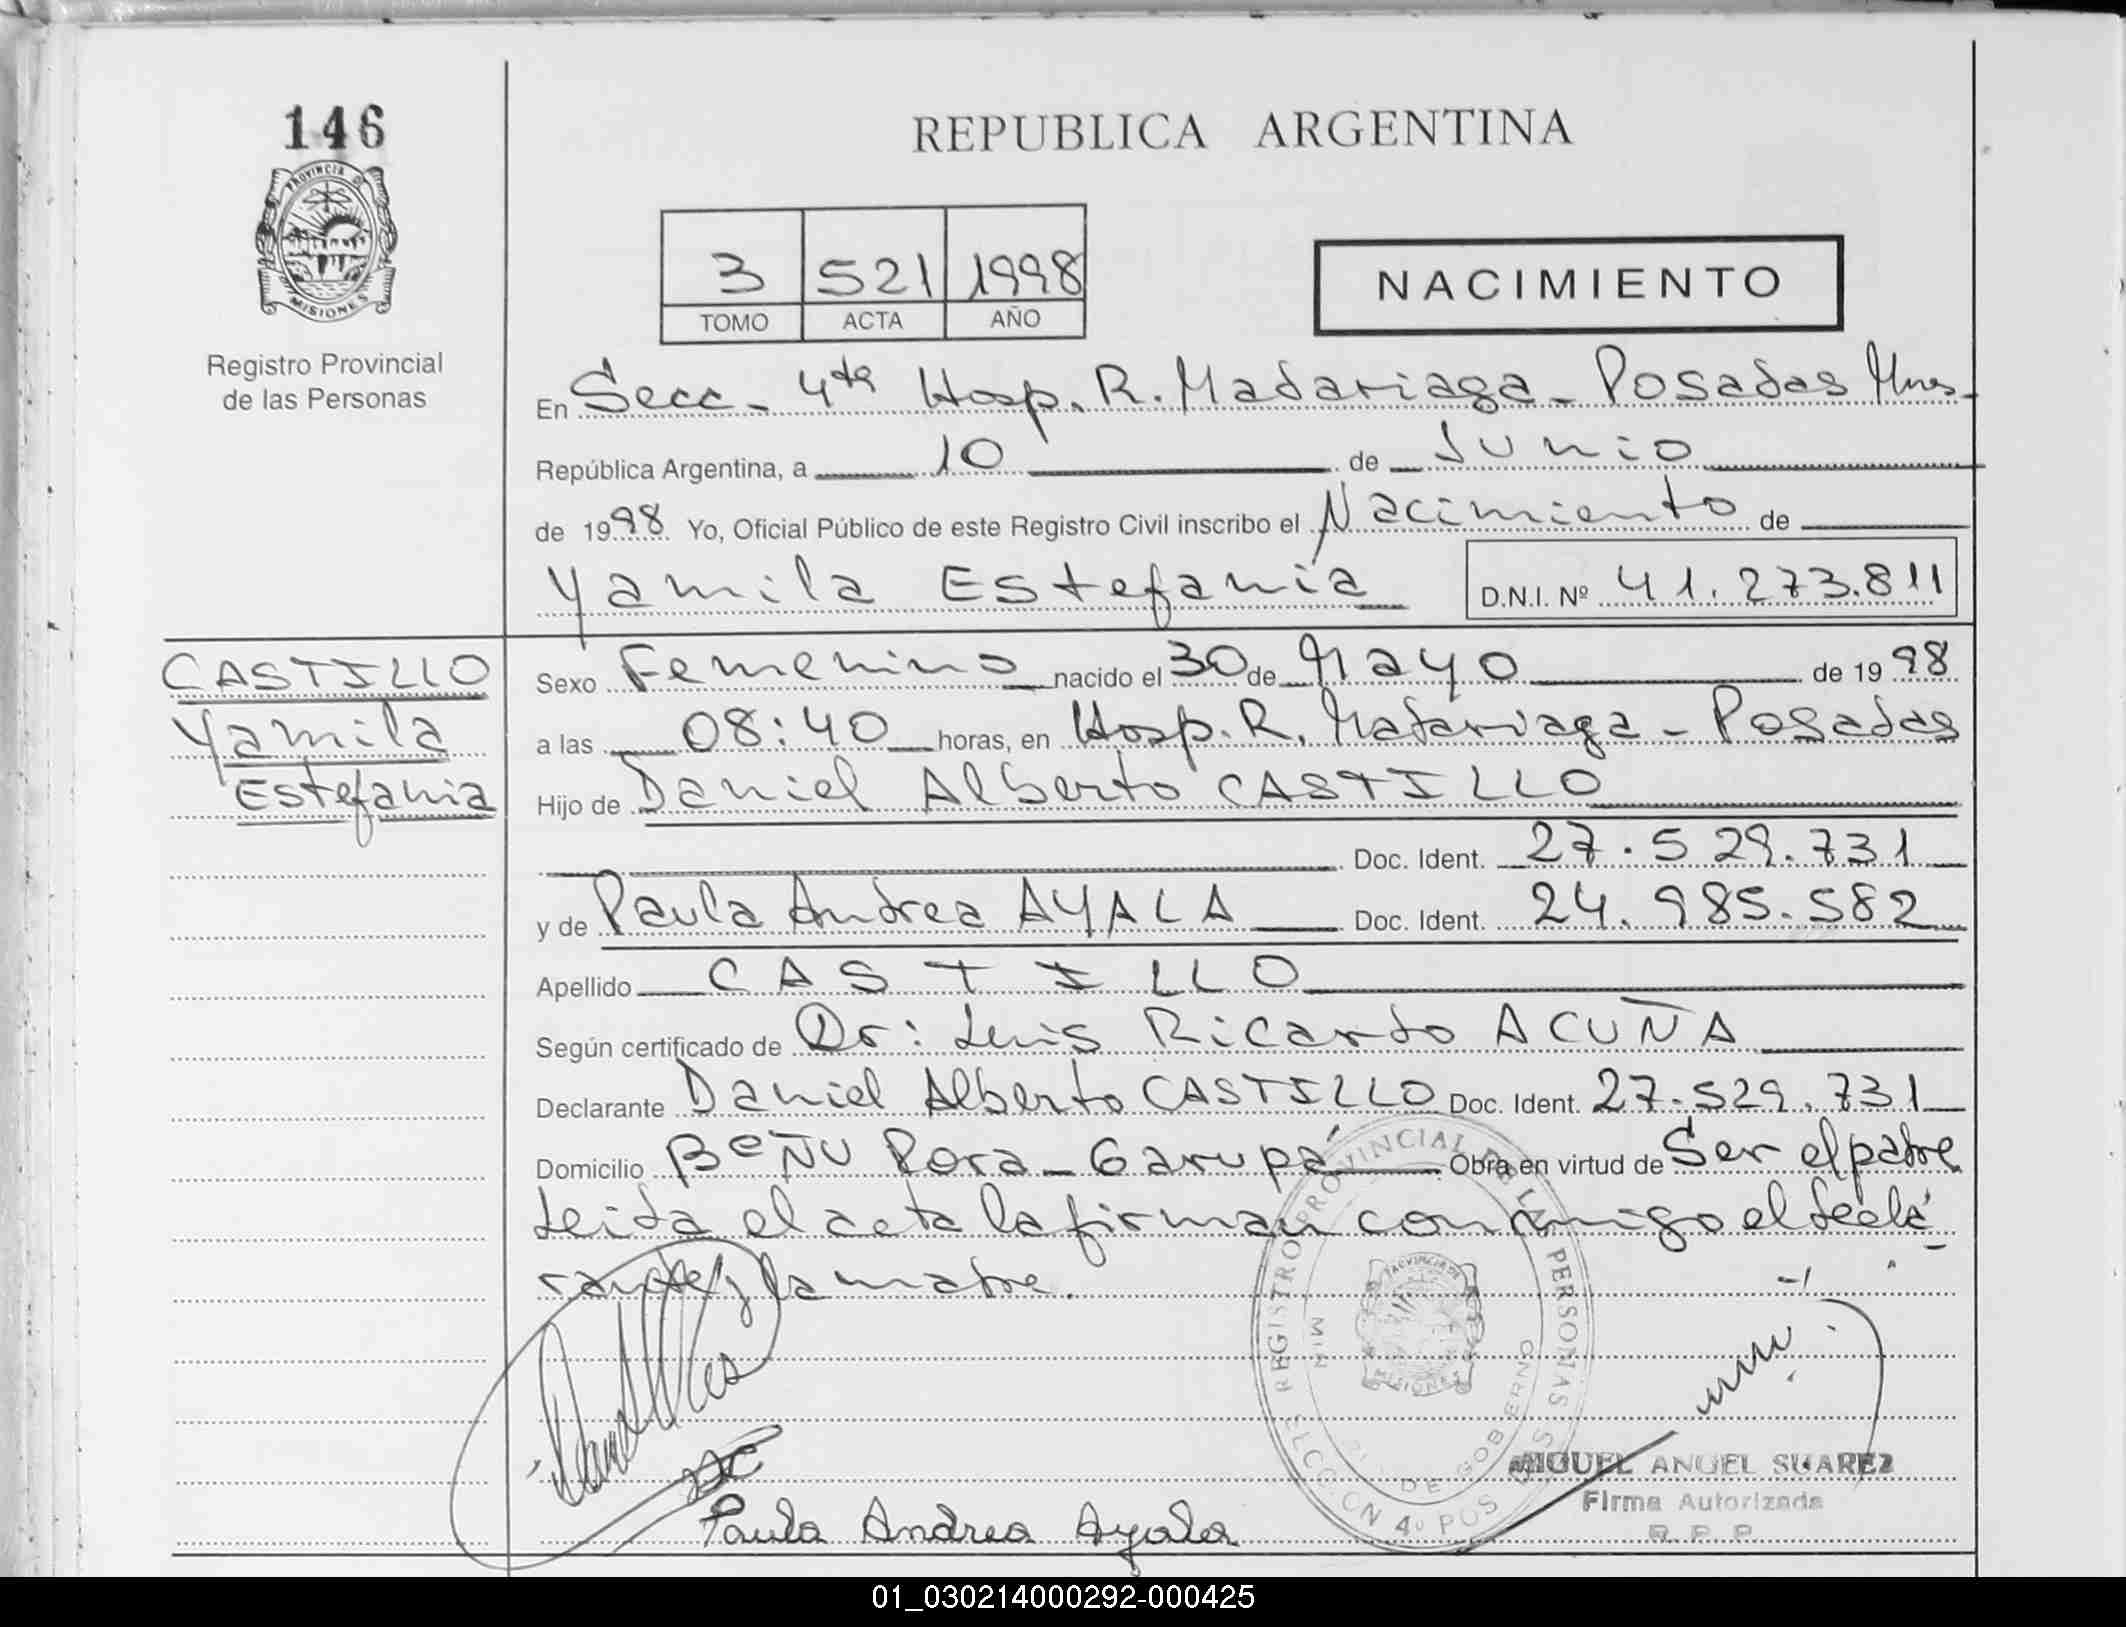 146
REPUBLICA ARGENTINA
PROVINCIA DE
MISIONES
Registro Provincial
de las Personas
3 521 1998
TOMO ACTA AÑO
NACIMIENTO
En Secc - 4ta Hosp. R. Madariaga - Posadas Mnes -
República Argentina, a 10 de Junio
de 1998 Yo, Oficial Público de este Registro Civil inscribo el Nacimiento de
Yamila Estefanía D.N.I. Nº 41.273.811
CASTILLO
Yamila
Estefania
Sexo Femenino nacido el 30 de Mayo de 1998
a las 08:40 horas, en Hosp. R. Madariaga - Posadas
Hijo de Daniel Alberto CASTILLO
Doc. Ident. 27.529.731
y de Paula Andrea AYALA Doc. Ident. 24.985.582
Apellido CASTILLO
Según certificado de Dr: Luis Ricardo ACUÑA
Declarante Daniel Alberto CASTILLO Doc. Ident. 27.529.731
Domicilio BeÑU Pora - Garupá Obra en virtud de Ser el padre
Leida el acta la firman conmigo el decla
rante y la madre.
REGISTRO PROVINCIAL DE LAS PERSONAS
MISIONES
DE GOBIERNO
MIGUEL ANGEL SUAREZ
Firma Autorizada
R. P. P.
Paula Andrea Ayala
01_030214000292-000425